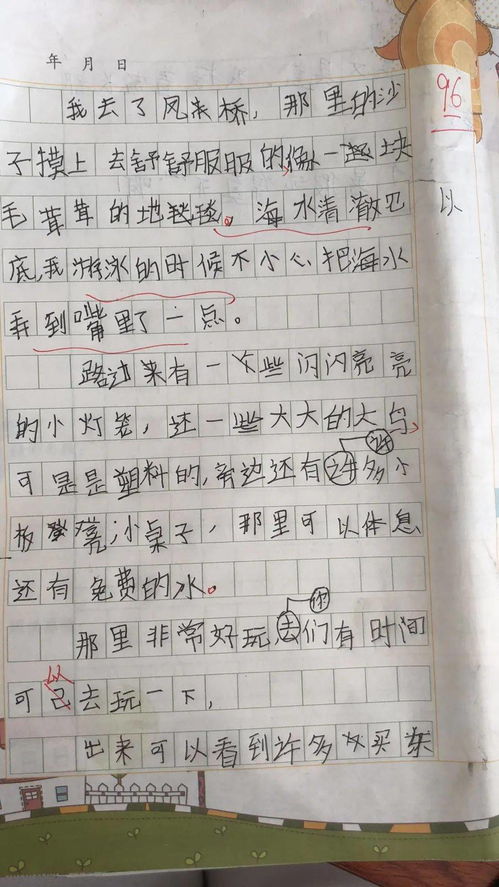 年 月 日
96
我去了凤来桥，那里的沙
子摸上去舒舒服服的像一块
毛茸茸的地毯。海水清澈见
以
底，我游泳的时候不小心把海水
弄到嘴里了一点。
路过来有一些闪闪亮亮
的小灯笼，还一些大大的大鸟
可是是塑料的，旁边还有许多小
板凳小桌子，那里可以体息
还有免费的水。
那里非常好玩你们有时间
可以去玩一下，
出来可以看到许多买东